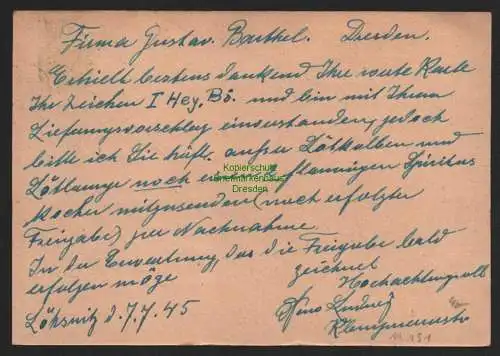 Firma Gustav. Barthel. Dresden.
Erhielt bestens dankend Ihre werte Karte
Ihr Zeichen I Hey. Bö. und bin mit Ihrem
Liefungsvorschlag einverstanden, jedoch
bitte ich Sie höfl. außer Lötkolben und
Lötlampe noch flammigen Spiritus
Kocher mitzusenden (nach erfolgter
Freigabe) per Nachnahme.
In der Erwartung, das die Freigabe bald
erfolgen möge zeichnet
Hochachtungsvoll
Lößnitz d. 7.4.45
Klempnermstr
Kopierschutz
Briefmarkenhaus
Dresden